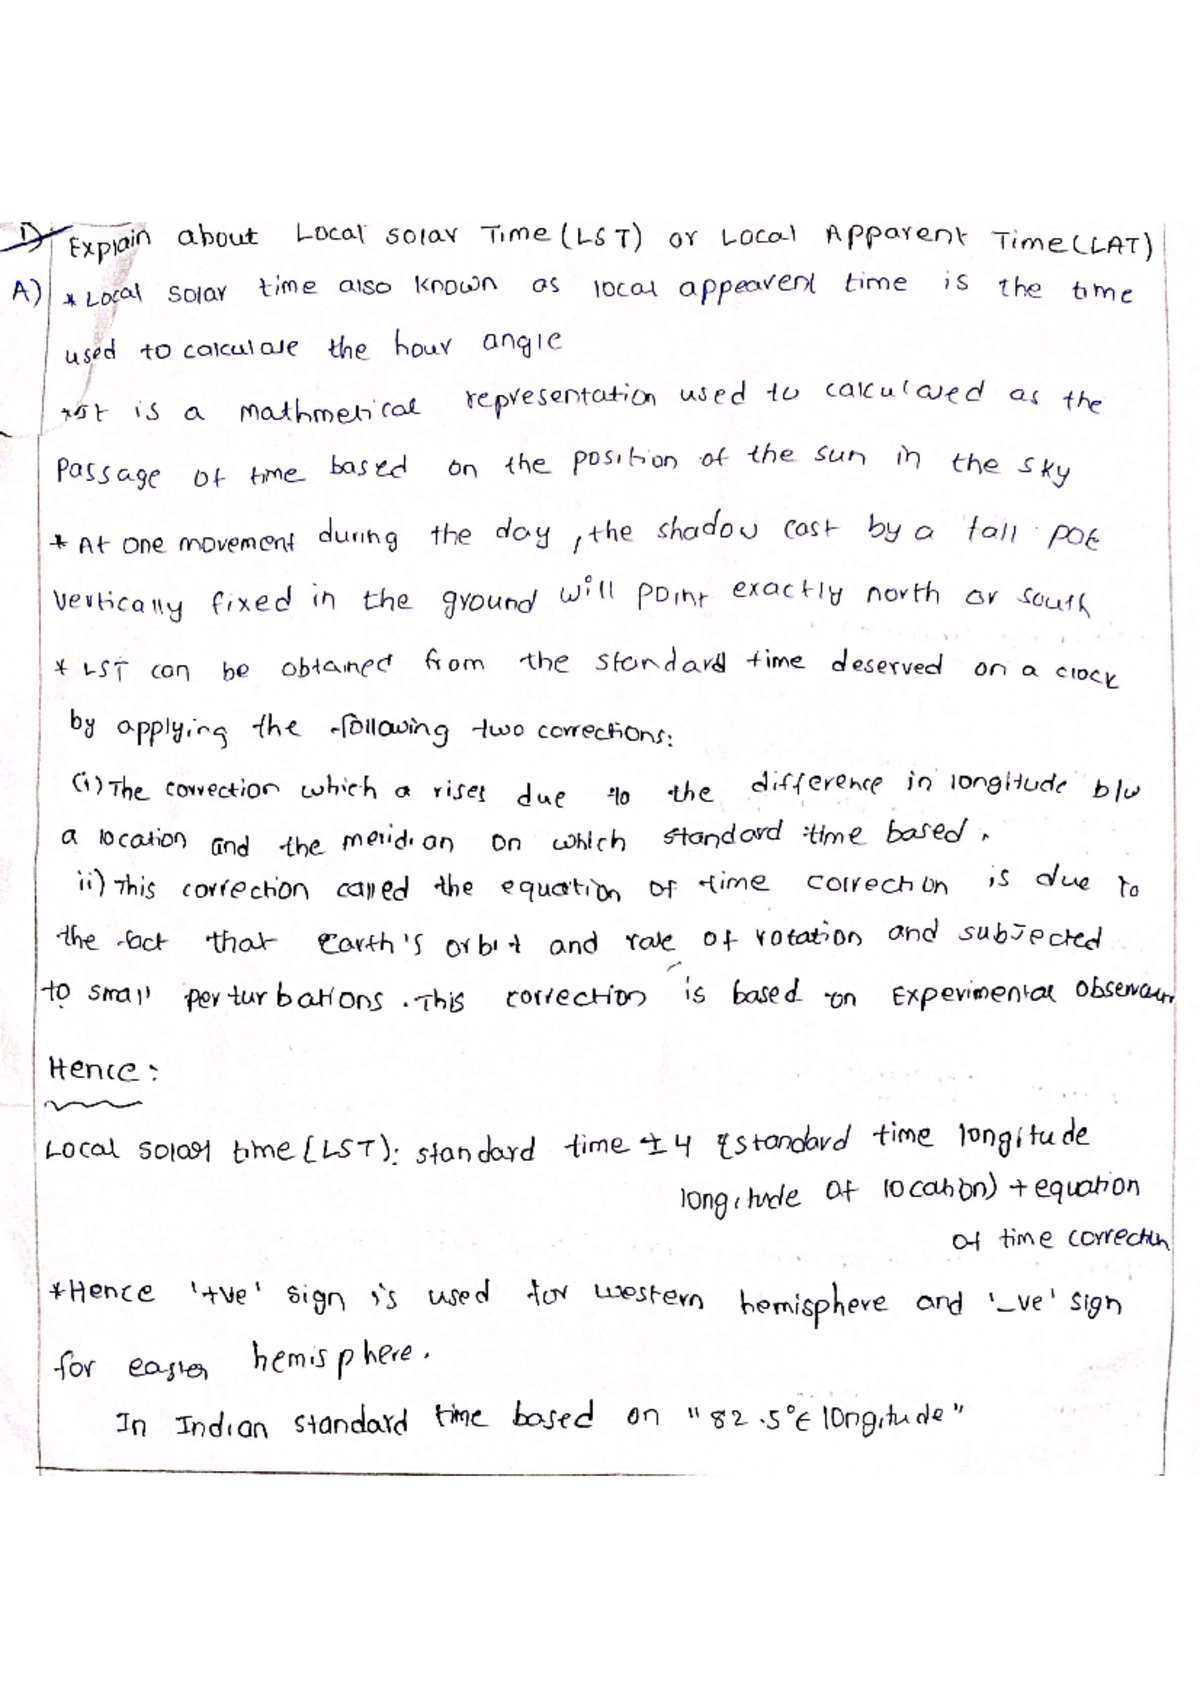 1) Explain about Local solar Time (LST) or Local Apparent Time (LAT)
A) * Local solar time also known as local appearent time is the time
used to calculate the hour angle
* It is a mathmetical representation used to calculated as the
passage of time based on the position of the sun in the sky
* At one movement during the day, the shadow cast by a tall pole
vertically fixed in the ground will point exactly north or south
* LST can be obtained from the standard time deserved on a clock
by applying the following two corrections:
(i) The correction which a rises due to the difference in longitude b/w
a location and the meridian on which standard time based.
ii) This correction called the equation of time correction is due to
the fact that Earth's orbit and rate of rotation and subjected
to small perturbations. This correction is based on Experimental
Hence:
Local solar time [LST]: standard time ± 4 (standard time longitude
longitude of location) + equation
of time correction
* Hence '+ve' sign is used for western hemisphere and '-ve' sign
for easter hemisphere.
In Indian standard time based on "82.5°E longitude"